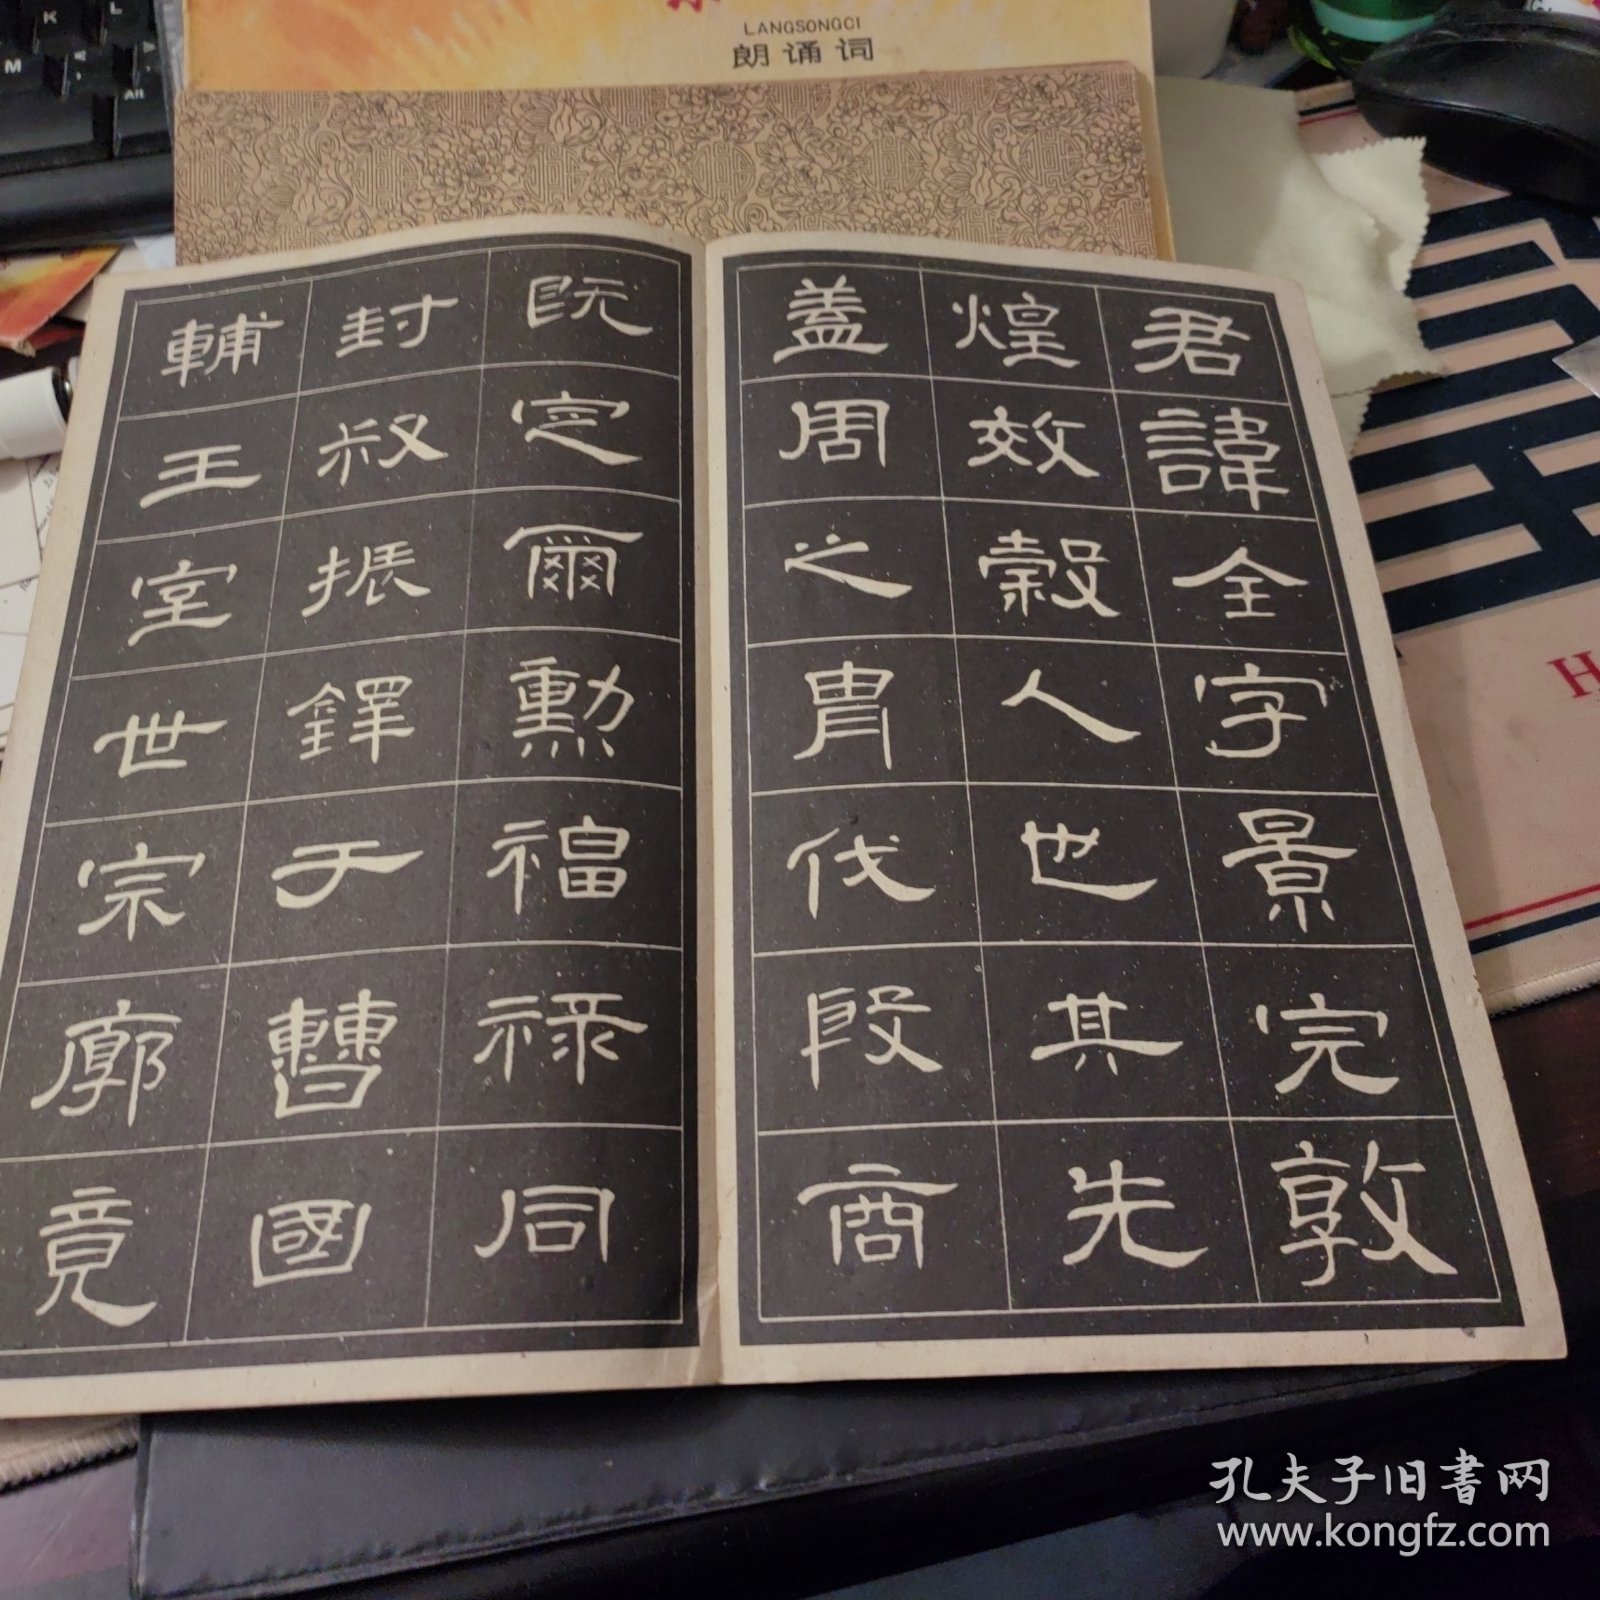 LANGSONGCI
朗诵词
君諱全字景完敦
煌效穀人也其先
蓋周之胄伐殷商
既定爾勲福祿同
封叔振鐸于曹國
輔王室世宗廓竟
孔夫子旧書网
www.kongfz.com
K
L
M
Alt
H